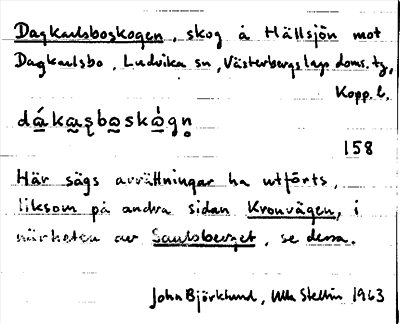 Dagkarlsboskogen, skog å Hällsjön mot
Dagkarlsbo, Ludvika sn, Västerbergslags doms. tg,
Kopp. l.
dákaʂboskògn̥
158
Här sägs avrättningar ha utförts,
liksom på andra sidan Kronvägen, i
närheten av Saulsberget, se dessa.
John Björklund, Ulla Stellin 1963